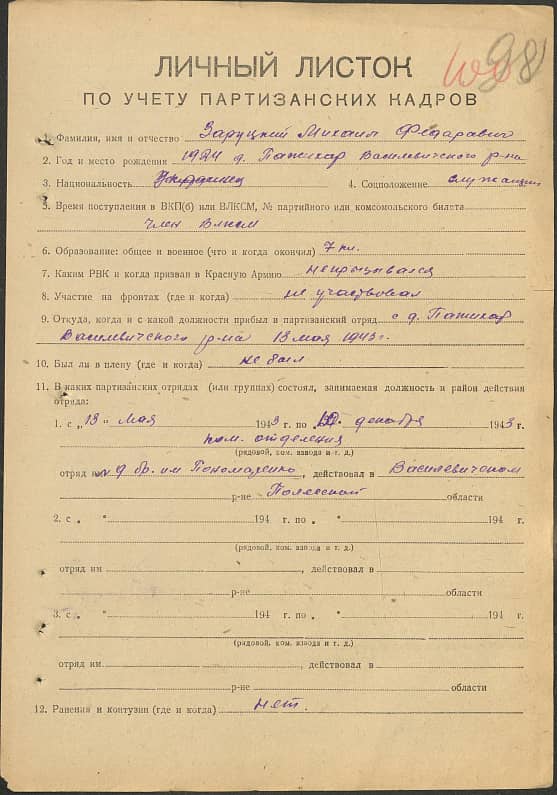 98
ЛИЧНЫЙ ЛИСТОК
ПО УЧЕТУ ПАРТИЗАНСКИХ КАДРОВ
1. Фамилия, имя и отчество Заруцкий Михаил Федарович
2. Год и место рождения 1924 д. Василевичского р-на
3. Национальность 4. Соцположение служащий
5. Время поступления в ВКП(б) или ВЛКСМ, № партийного или комсомольского билета
член Влксм
6. Образование: общее и военное (что и когда окончил) 7 кл.
7. Каким РВК и когда призван в Красную Армию непрызывался
8. Участие на фронтах (где и когда) не участвовал
9. Откуда, когда и с какой должности прибыл в партизанский отряд с д.
Василевичского р-на 13 мая 1943 г.
10. Был ли в плену (где и когда) не был
11. В каких партизанских отрядах (или группах) состоял, занимаемая должность и район действия
отряда:
1. с „13" мая 1943 г. по декабря 1943 г.
ком. отделения
(рядовой, ком. взвода и т. д.)
отряд бр. им Пономаренко, действовал в Василевичском
р-не Полесской области
2. с „ " 194 г. по „ " 194 г.
(рядовой, ком. взвода и т. д.)
отряд им , действовал в
р-не области
3. с „ " 194 г. по „ " 194 г.
(рядовой, ком. взвода и т. д.)
отряд им , действовал в
р-не области
12. Ранения и контузии (где и когда) нет.